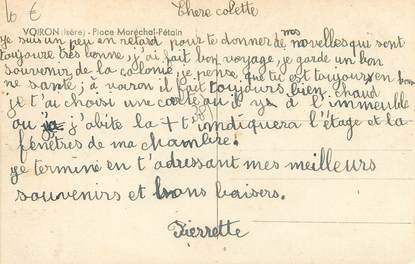 10 €
Chere colette
VOIRON (Isère) - Place Maréchal-Pétain
je suis un peu en retard pour te donner de mes novelles qui sont
toujoure très bonne, j'ai fait bon voyage, je garde un bon
souvenir de la colonie, je pense que tu est toujours en bon
ne santé, à varon il fait toujours bien chaud
je t'ai choisi une carte au il y a l'immeuble
ou j'abite la + t'indiquera l'étage et la
fenêtres de ma chambre.
je termine en t'adressant mes meilleurs
souvenirs et bons baisers.
Pierrette